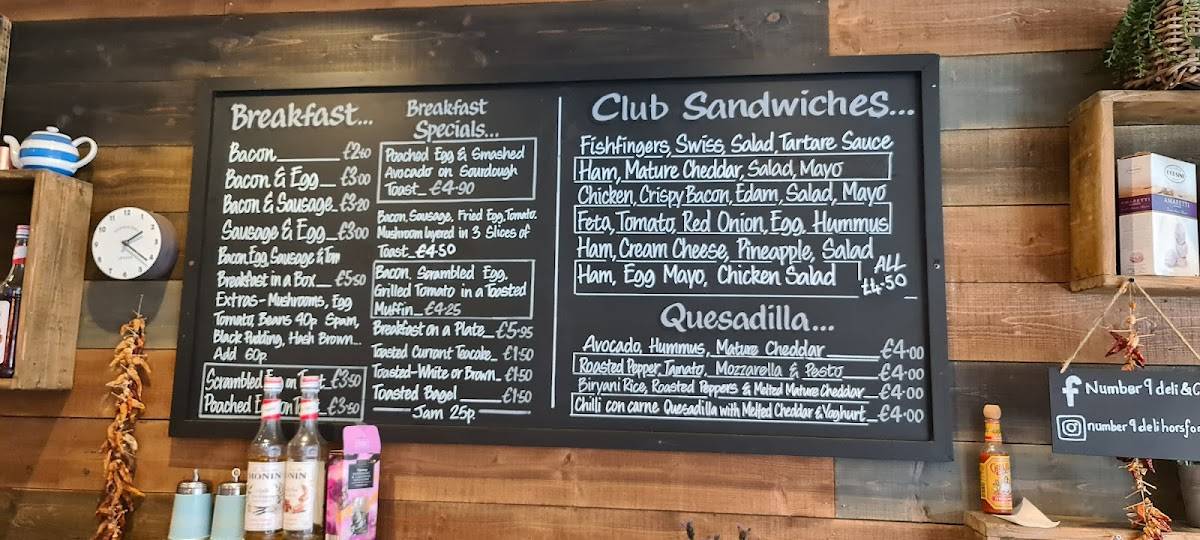 Breakfast...
Bacon £2.60
Bacon & Egg £3.00
Bacon & Sausage £3.20
Sausage & Egg £3.00
Bacon, Egg, Sausage & Tom
Breakfast in a Box £5.50
Extras - Mushrooms, Egg
Tomato, Beans 40p Spam,
Black Pudding, Hash Brown...
Add 60p
Scrambled on Toast £3.50
Poached Egg on £3.50
Breakfast
Specials...
Poached Egg & Smashed
Avocado on Sourdough
Toast £4.90
Bacon, Sausage, Fried Egg, Tomato
Mushroom layered in 3 Slices of
Toast £4.50
Bacon, Scrambled Egg,
Grilled Tomato in a Toasted
Muffin £4.25
Breakfast on a Plate £5.95
Toasted Currant Teacake £1.50
Toasted - White or Brown £1.50
Toasted Bagel £1.50
Jam 25p
Club Sandwiches...
Fishfingers, Swiss, Salad, Tartare Sauce
Ham, Mature Cheddar, Salad, Mayo
Chicken, Crispy Bacon, Edam, Salad, Mayo
Feta, Tomato, Red Onion, Egg, Hummus
Ham, Cream Cheese, Pineapple, Salad
Ham, Egg Mayo, Chicken Salad
ALL
£4.50
Quesadilla...
Avocado, Hummus, Mature Cheddar £4.00
Roasted Pepper, Tomato, Mozzarella & Pesto £4.00
Biryani Rice, Roasted Peppers & Melted Mature Cheddar £4.00
Chilli con carne Quesadilla with Melted Cheddar & Yoghurt £4.00
AMARETTI
Number 9 deli &
number9delihorsfo
MONIN